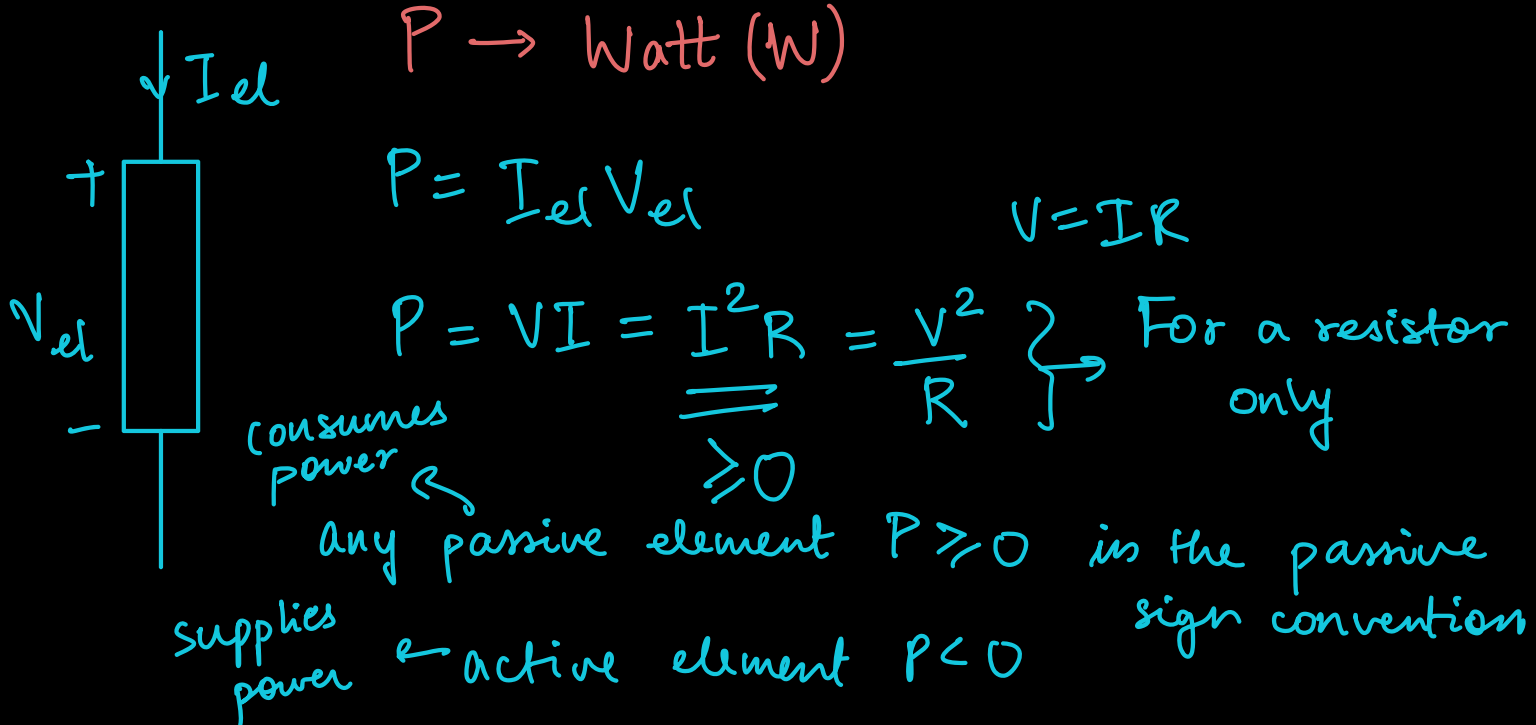 P → Watt (W)
I el
+
P = I el V el
V = IR
V el
P = VI = I² R = V² / R } → For a resistor
only
-
consumes
power
≥ 0
any passive element P ≥ 0 in the passive
sign convention
supplies
power
← active element P < 0